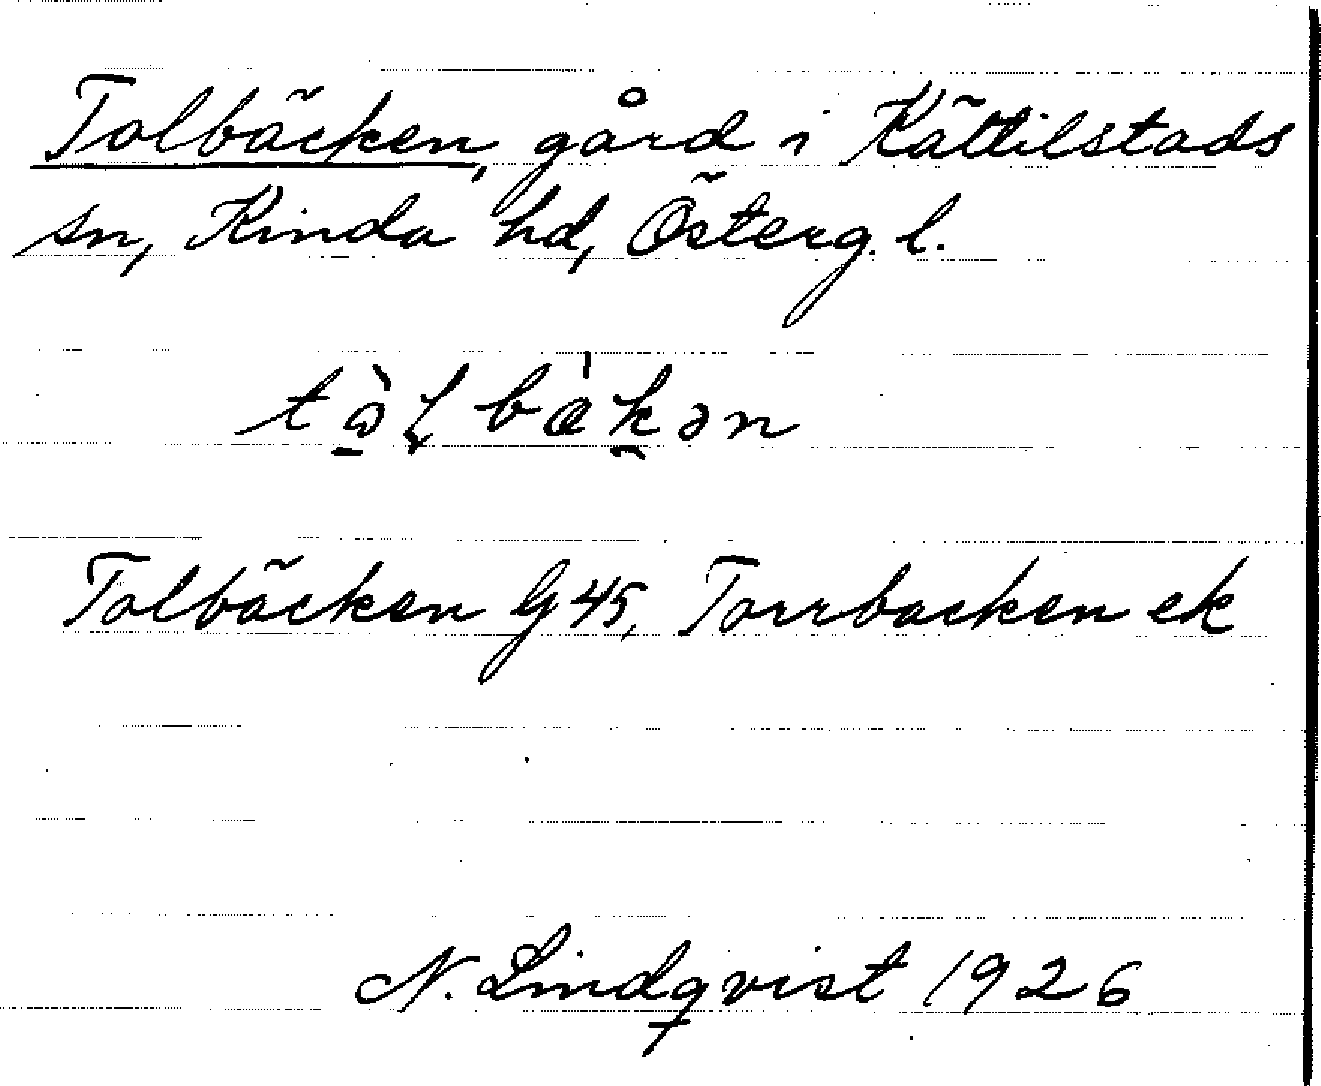 Tolbäcken, gård i Kättilstads
sn, Kinda hd, Österg. l.
Tolbäcken G 45, Torrbacken ek
N. Lindqvist 1926